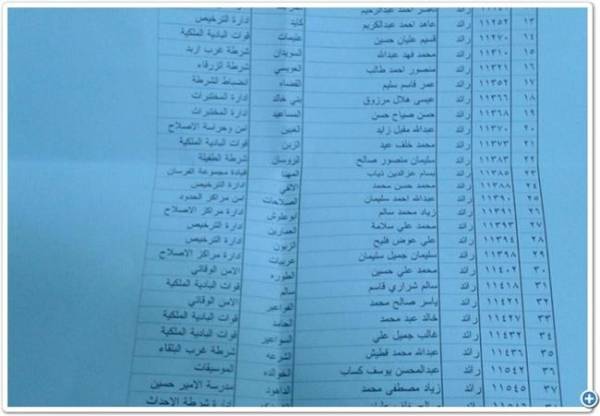 رائد عبدالرحيم
١٣ ١١٢٥٢ رائد عاهد احمد عبدالكريم كايد ادارة الترخيص
١٤ ١١٢٧٠ رائد قسيم عليان حسين عليمات قوات البادية الملكية
١٥ ١١٣١٠ رائد محمد فهد عبدالله السويدان شرطة غرب اربد
١٦ ١١٣٢١ رائد منصور احمد طالب العويسي شرطة الزرقاء
١٧ ١١٣٥٢ رائد عمر قاسم سليم القضاه انضباط الشرطة
١٨ ١١٣٦٦ رائد عيسى هلال مرزوق بني خالد ادارة المختبرات
١٩ ١١٣٦٨ رائد حسن صياح حسن المساعيد ادارة المختبرات
٢٠ ١١٣٧٠ رائد عبدالله مقبل زايد الغبين امن وحراسة الاصلاح
٢١ ١١٣٧٣ رائد محمد خلف عيد الزبن قوات البادية الملكية
٢٢ ١١٣٨٣ رائد سليمان منصور صالح الروسان شرطة الطفيلة
٢٣ ١١٣٨٥ رائد بسام عزالدين ذياب المهنا قيادة مجموعة الفرسان
٢٤ ١١٣٨٨ رائد محمد حسن محمد اللافي ادارة الترخيص
٢٥ ١١٣٩٠ رائد عبدالله احمد سليمان الصلاحات امن مراكز الحدود
٢٦ ١١٣٩١ رائد زياد محمد سالم ابوعلوش ادارة مراكز الاصلاح
٢٧ ١١٣٩٣ رائد محمد علي سلامة العمارين ادارة الترخيص
٢٨ ١١٣٩٤ رائد علي عوض فليح الزبون ادارة الترخيص
٢٩ ١١٣٩٨ رائد سليمان جميل سليمان عربيات ادارة مراكز الاصلاح
٣٠ ١١٤٠٢ رائد محمد علي حسين الطوره الامن الوقائي
٣١ ١١٤١٨ رائد سالم شراري قاسم سالم قوات البادية الملكية
٣٢ ١١٤٢١ رائد ياسر صالح محمد الفواعير الامن الوقائي
٣٣ ١١٤٢٧ رائد خالد عبد محمد الحامد قوات البادية الملكية
٣٤ ١١٤٣٢ رائد غالب جميل علي السواعير قوات البادية الملكية
٣٥ ١١٤٣٦ رائد عبدالله محمد قطيش الشرعه شرطة غرب البلقاء
٣٦ ١١٥٤٢ رائد عبدالمحسن يوسف كساب الخوالده الموسيقات
٣٧ ١١٥٤٥ رائد زياد مصطفى محمد الداهود مدرسة الامير حسين
ادارة شرطة الاحداث